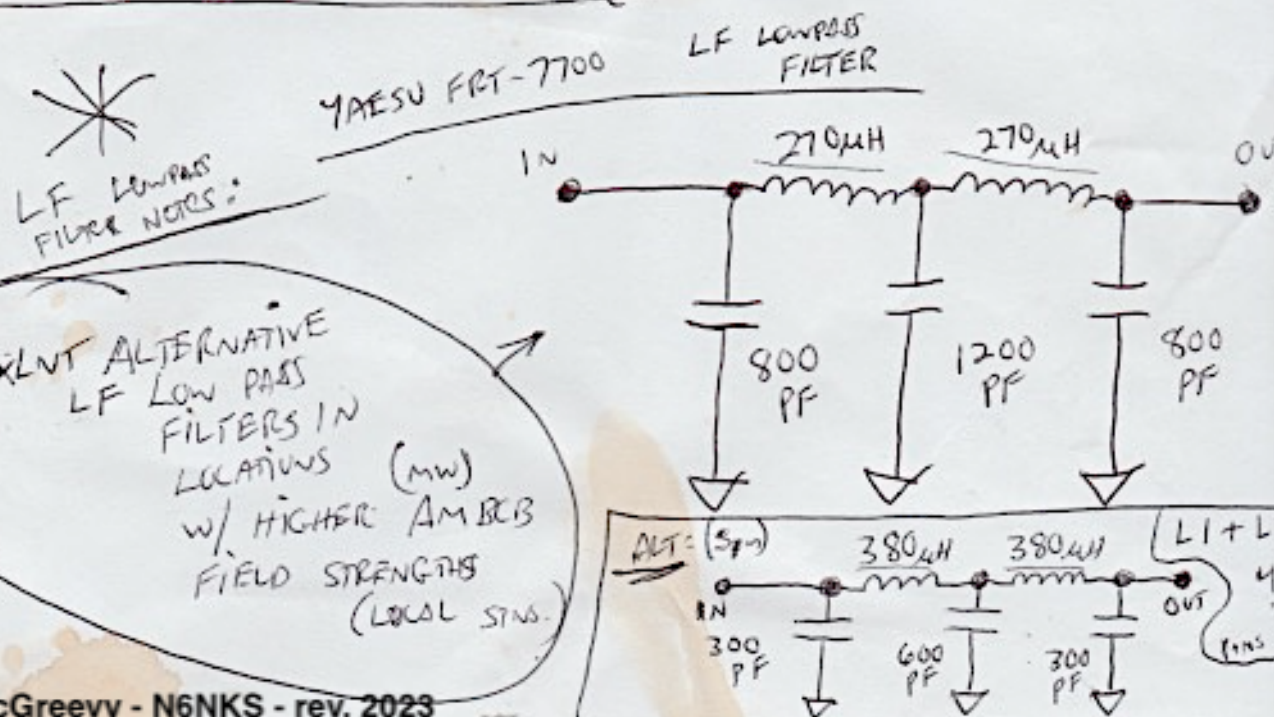 YAESU FRT-7700
LF LOWPASS
FILTER
LF LOWPASS
FILTER NOTES:
IN
270µH
270µH
OU
800
PF
1200
PF
800
PF
XLNT ALTERNATIVE
LF LOW PASS
FILTERS IN
LOCATIONS (MW)
W/ HIGHER AMBCB
FIELD STRENGTHS
(LOCAL STNS.)
ALT=
380µH
380µH
L1 + L
IN
OUT
300
PF
600
PF
300
PF
cGreevy - N6NKS - rev. 2023